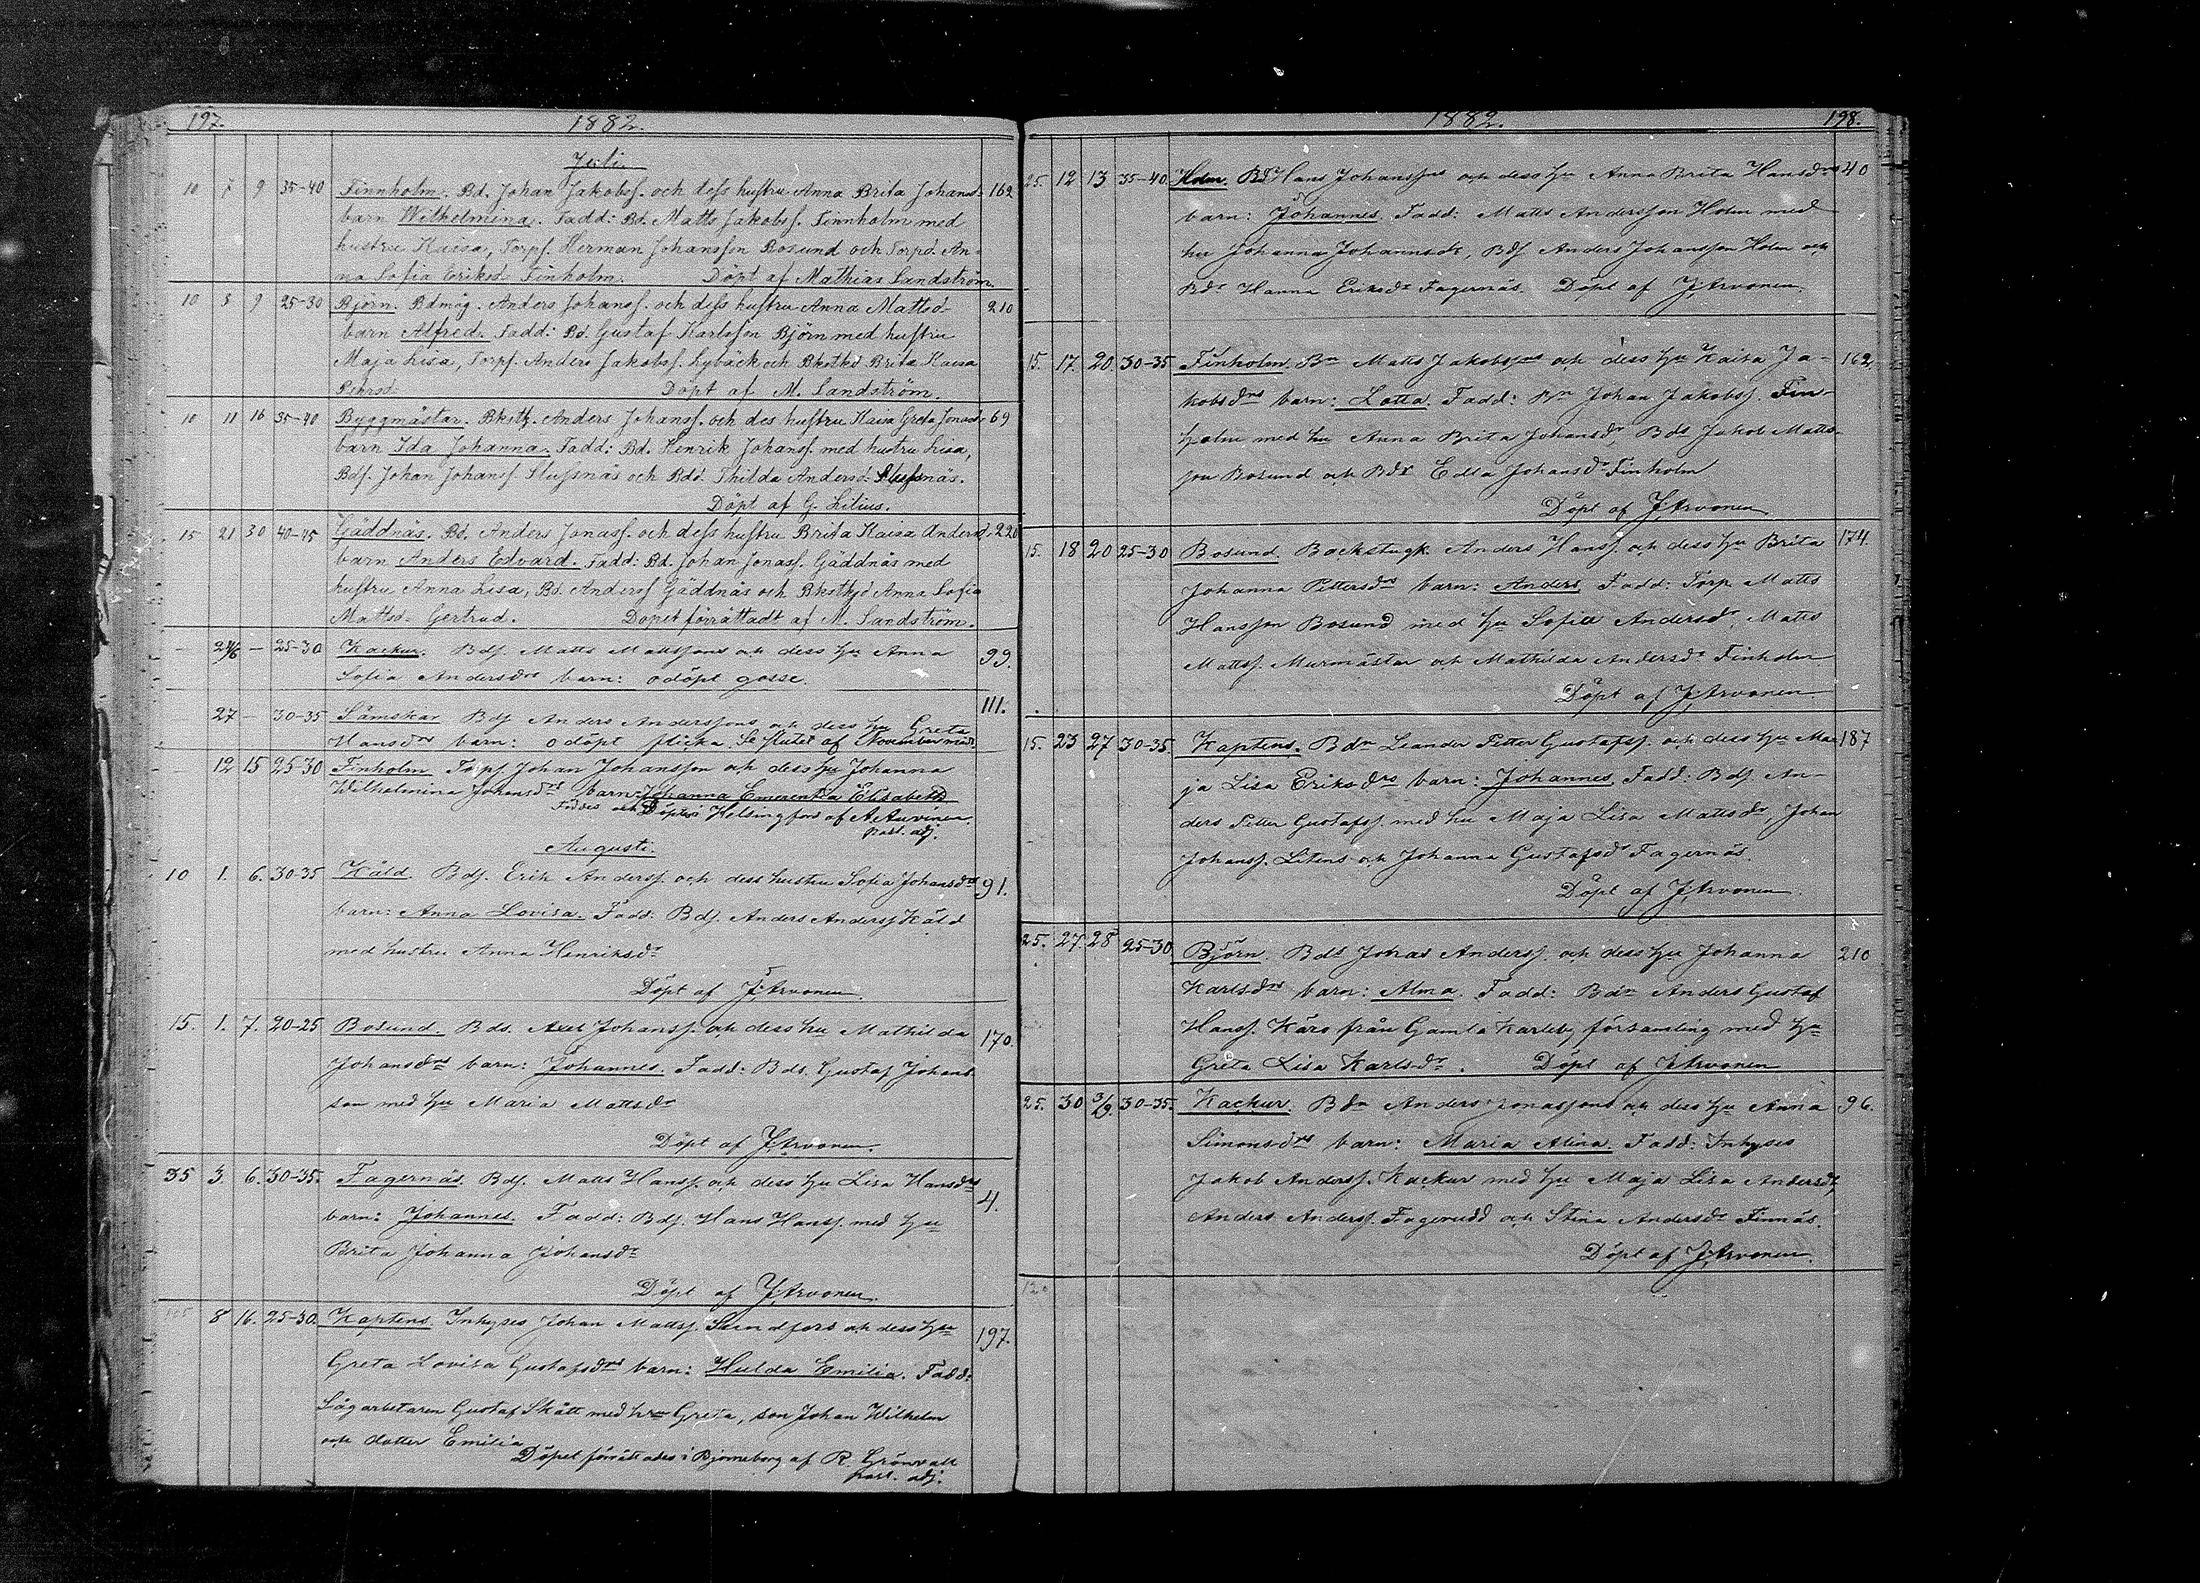 197.
1882.
Juli.
10 7 9 35-40 Finnholm. Bd. Johan Jakobss. och dess hustru Anna Brita Johansd. 162
barn Wilhelmina. Fadd: Bd. Matts Jakobss. Finnholm med
hustru Kaisa, Torps. Herman Johansson Bosund och Torpd. An-
na Sofia Eriksd. Finholm. Döpt af Mathias Sandström.
10 8 9 25-30 Björn. Bdmåg. Anders Johanss. och dess hustru Anna Mattsd. 210
barn Alfred. Fadd: Bd. Gustaf Karlsson Björn med hustru
Maja Lisa, Torps. Anders Jakobss. Lybäck och Bkstkd Brita Kaisa
Pehrsd. Döpt af M. Sandström.
10 11 16 35-40 Byggmästar. Bkstg. Anders Johanss. och des hustru Kaisa Greta Jonasd. 69
barn Ida Johanna. Fadd: Bd. Henrik Johanss. med hustru Lisa,
Bds. Johan Johanss. Slussnäs och Bdd. Thilda Andersd. Slussnäs.
Döpt af G. Lilius.
15 21 30 40-45 Gäddnäs. Bd. Anders Jonass. och dess hustru Brita Kaisa Andersd. 220
barn Anders Edvard. Fadd: Bd. Johan Jonass. Gäddnäs med
hustru Anna Lisa, Bd. Anderss Gäddnäs och Bkstkjd Anna Sofia
Mattsd. Gertrud. Dopet förrättadt af M. Sandström.
- 24/6 - 25-30 Kackur. Bds. Matts Mattssons och dess hu Anna 99.
Sofia Andersdrs barn: odöpt gosse.
27 - 30-35 Sämskar Bds Anders Anderssons och dess hu Greta 111.
Hansdrs barn: odöpt flicka. Se slutet af November mån.
- 12 15 25-30 Finholm Torps Johan Johansson och dess hu Johanna
Wilhelmina Johansdrs barn: Johanna Emerentia Elisabeth
Föddes och Döptes i Helsingfors af A. Auvinen
past. adj.
Augusti.
10 1. 6. 30-35 Käld. Bds. Erik Anderss. och dess hustru Sofia Johansdrs 91.
barn: Anna Lovisa. Fadd: Bds. Anders Anderss Käld
med hustru Anna Henriksdr
Döpt af J. Arvonen.
15. 1. 7. 20-25 Bosund. Bds. Axel Johanss. och dess hu Mathilda 170.
Johansdrs barn: Johannes. Fadd: Bds. Gustaf Johans
son med hu Maria Mattsdr
Döpt af J. Arvonen.
35 3. 6. 30-35. Fagernäs Bds. Matts Hanss. och dess hu Lisa Hansdrs 4.
barn: Johannes. Fadd: Bds. Hans Hanss. med hu
Brita Johanna Johansdr
Döpt af J. Arvonen.
8 16. 25-30. Kaptens. Inhyses Johan Mattss. Sandfors och dess hu 197.
Greta Lovisa Gustafsdrs barn: Hulda Emilia. Fadd:
Sågarbetaren Gustaf Skått med hru Greta, son Johan Wilhelm
och dotter Emilia
Dopet förrättades i Björneborg af R. Grönvall
past. adj.
1882.
198.
25. 12 13 35-40. Holm. Bd Hans Johanssons och dess hu Anna Brita Hansdrs 40
barn: Johannes. Fadd: Matts Andersson Holm med
hu Johanna Johannsdr, Bds Anders Johansson Holm och
Bdr Hanna Eriksdr Fagernäs. Döpt af J. Arvonen.
15. 17. 20. 30-35 Finholm. Bn Matts Jakobssons och dess hu Kaisa Ja- 162.
kobsdrs barn: Lotta. Fadd: Bn Johan Jakobss. Fin-
holm med hu Anna Brita Johansdr, Bds Jakob Matts-
son Bosund och Bdr Edla Johansdr Finholm
Döpt af J. Arvonen
15. 18 20 25-30 Bosund. Backstugk Anders Hanss. och dess hu Brita 174
Johanna Pettersdrs barn: Anders. Fadd: Torp Matts
Hansson Bosund med hu Sofia Andersdr, Matts
Mattss. Murmästar och Mathilda Andersdr Finholm
Döpt af J. Arvonen
15. 23 27 30-35. Kaptens. Bdn Leander Petter Gustafss. och dess hu Ma- 187
ja Lisa Eriksdrs barn: Johannes. Fadd: Bds. An-
ders Petter Gustafss. med hu Maja Lisa Mattsdr, Johan
Johanss. Litens och Johanna Gustafsdr Fagernäs.
Döpt af J. Arvonen.
25. 27. 28 25-30 Björn. Bds Johas Anderss. och dess hu Johanna 210
Karlsdrs barn: Alma. Fadd: Bdn Anders Gustaf
Hanss. Käro från Gamla Karleby församling med hu
Greta Lisa Karlsdr. Döpt af J. Arvonen
25. 30 3/9. 30-35. Kackur. Bdn Anders Jonassons och dess hu Anna 96.
Simonsdrs barn: Maria Alina. Fadd: Inhyses
Jakob Anderss. Kackur med hu Maja Lisa Andersdr,
Anders Anderss. Fagerudd och Stina Andersdr Finnäs.
Döpt af J. Arvonen.
120